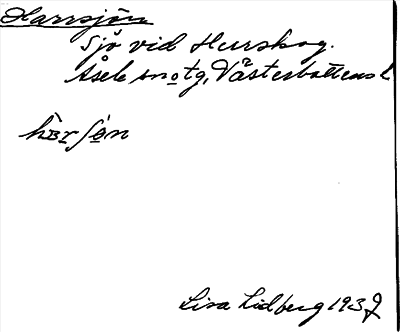 Harrsjön
Sjö vid Hurrskog.
Åsele sn o tg, Västerbottens l.
Lisa Lidberg 1937